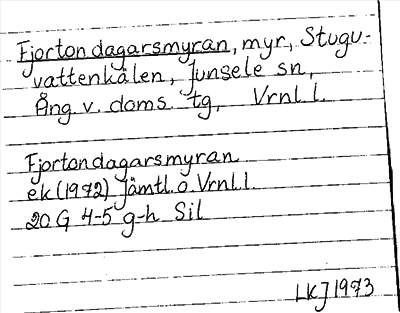 Fjortondagarsmyran, myr, Stugu-
vattenkälen, Junsele sn,
Ång. v. doms. tg, Vrnl. l.
Fjortondagarsmyran
ek (1972) Jämtl. o. Vrnl. l.
20 G 4-5 g-h Sil
LKJ 1973